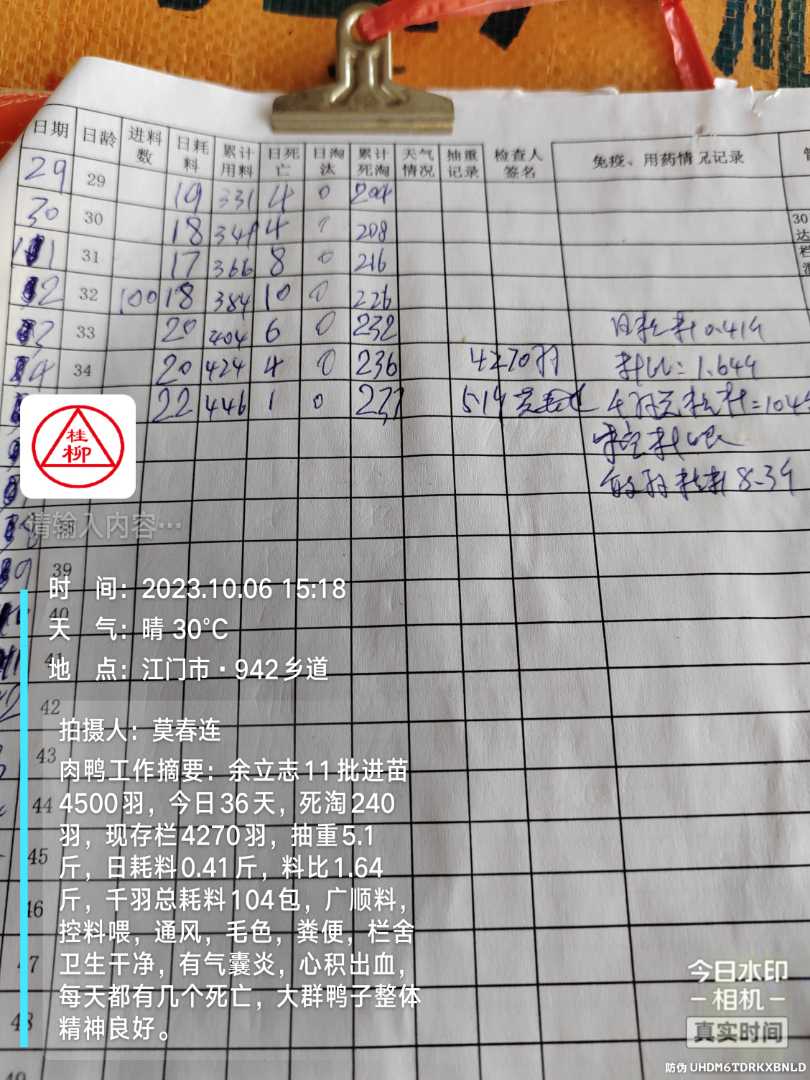 日期 日龄 进料数 日耗料 累计用料 日死亡 日淘汰 累计死淘 天气情况 抽重记录 检查人签名 免疫、用药情况记录
29 29 19 331 4 0 204
30 30 18 349 4 0 208
1 31 17 366 8 0 216
2 32 100 18 384 10 0 226
3 33 20 404 6 0 232 日耗料0.41斤
4 34 20 424 4 0 236 4270羽 料比:1.64斤
22 446 1 0 237 5.1斤 千羽总耗料=104
控料喂
8.3斤
桂柳
请输入内容…
38
39
时 间：2023.10.06 15:18
40
天 气：晴 30℃
41
地 点：江门市·942乡道
42
拍摄人：莫春连
43
肉鸭工作摘要：余立志11批进苗
44
4500羽，今日36天，死淘240
羽，现存栏4270羽，抽重5.1
45
斤，日耗料0.41斤，料比1.64
斤，千羽总耗料104包，广顺料，
46
控料喂，通风，毛色，粪便，栏舍
47
卫生干净，有气囊炎，心积出血，
每天都有几个死亡，大群鸭子整体
48
精神良好。
今日水印
相机
真实时间
防伪 UHDM6TDRKXBNLD